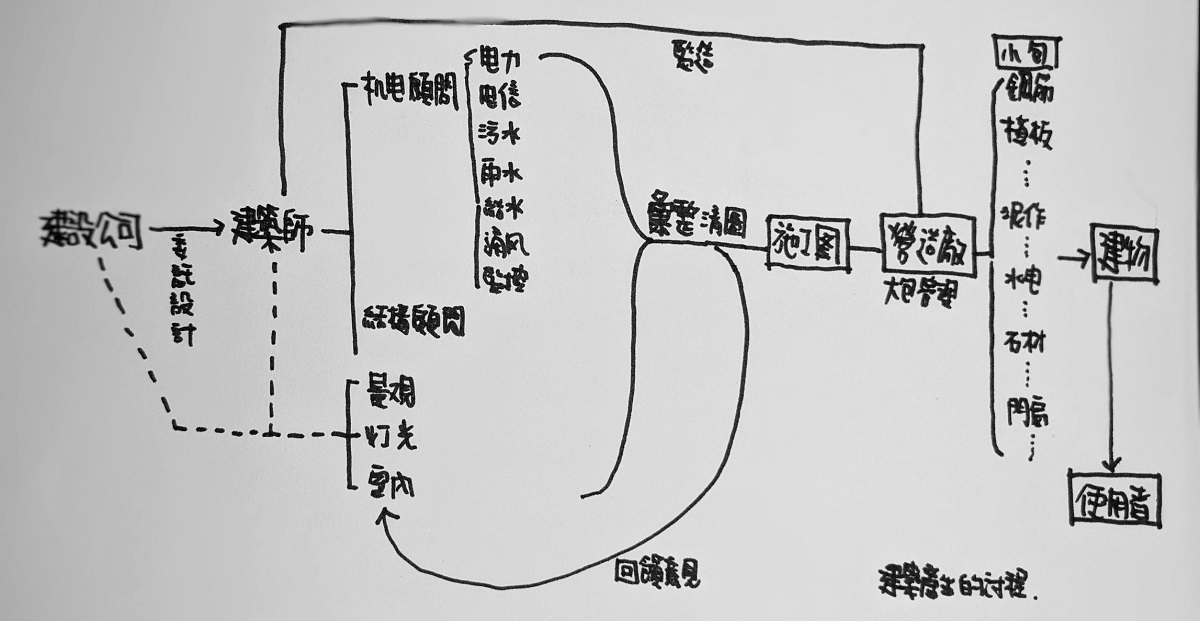 建設公司
委託設計
建築師
監造
机电顧問
电力
电信
污水
雨水
給水
通风
監控
結構顧問
景观
灯光
室內
彙整清圖
回饋意見
施工图
營造廠
大包管理
小包
鋼筋
模板
泥作
水电
石材
門窗
建物
使用者
建築產生的过程.